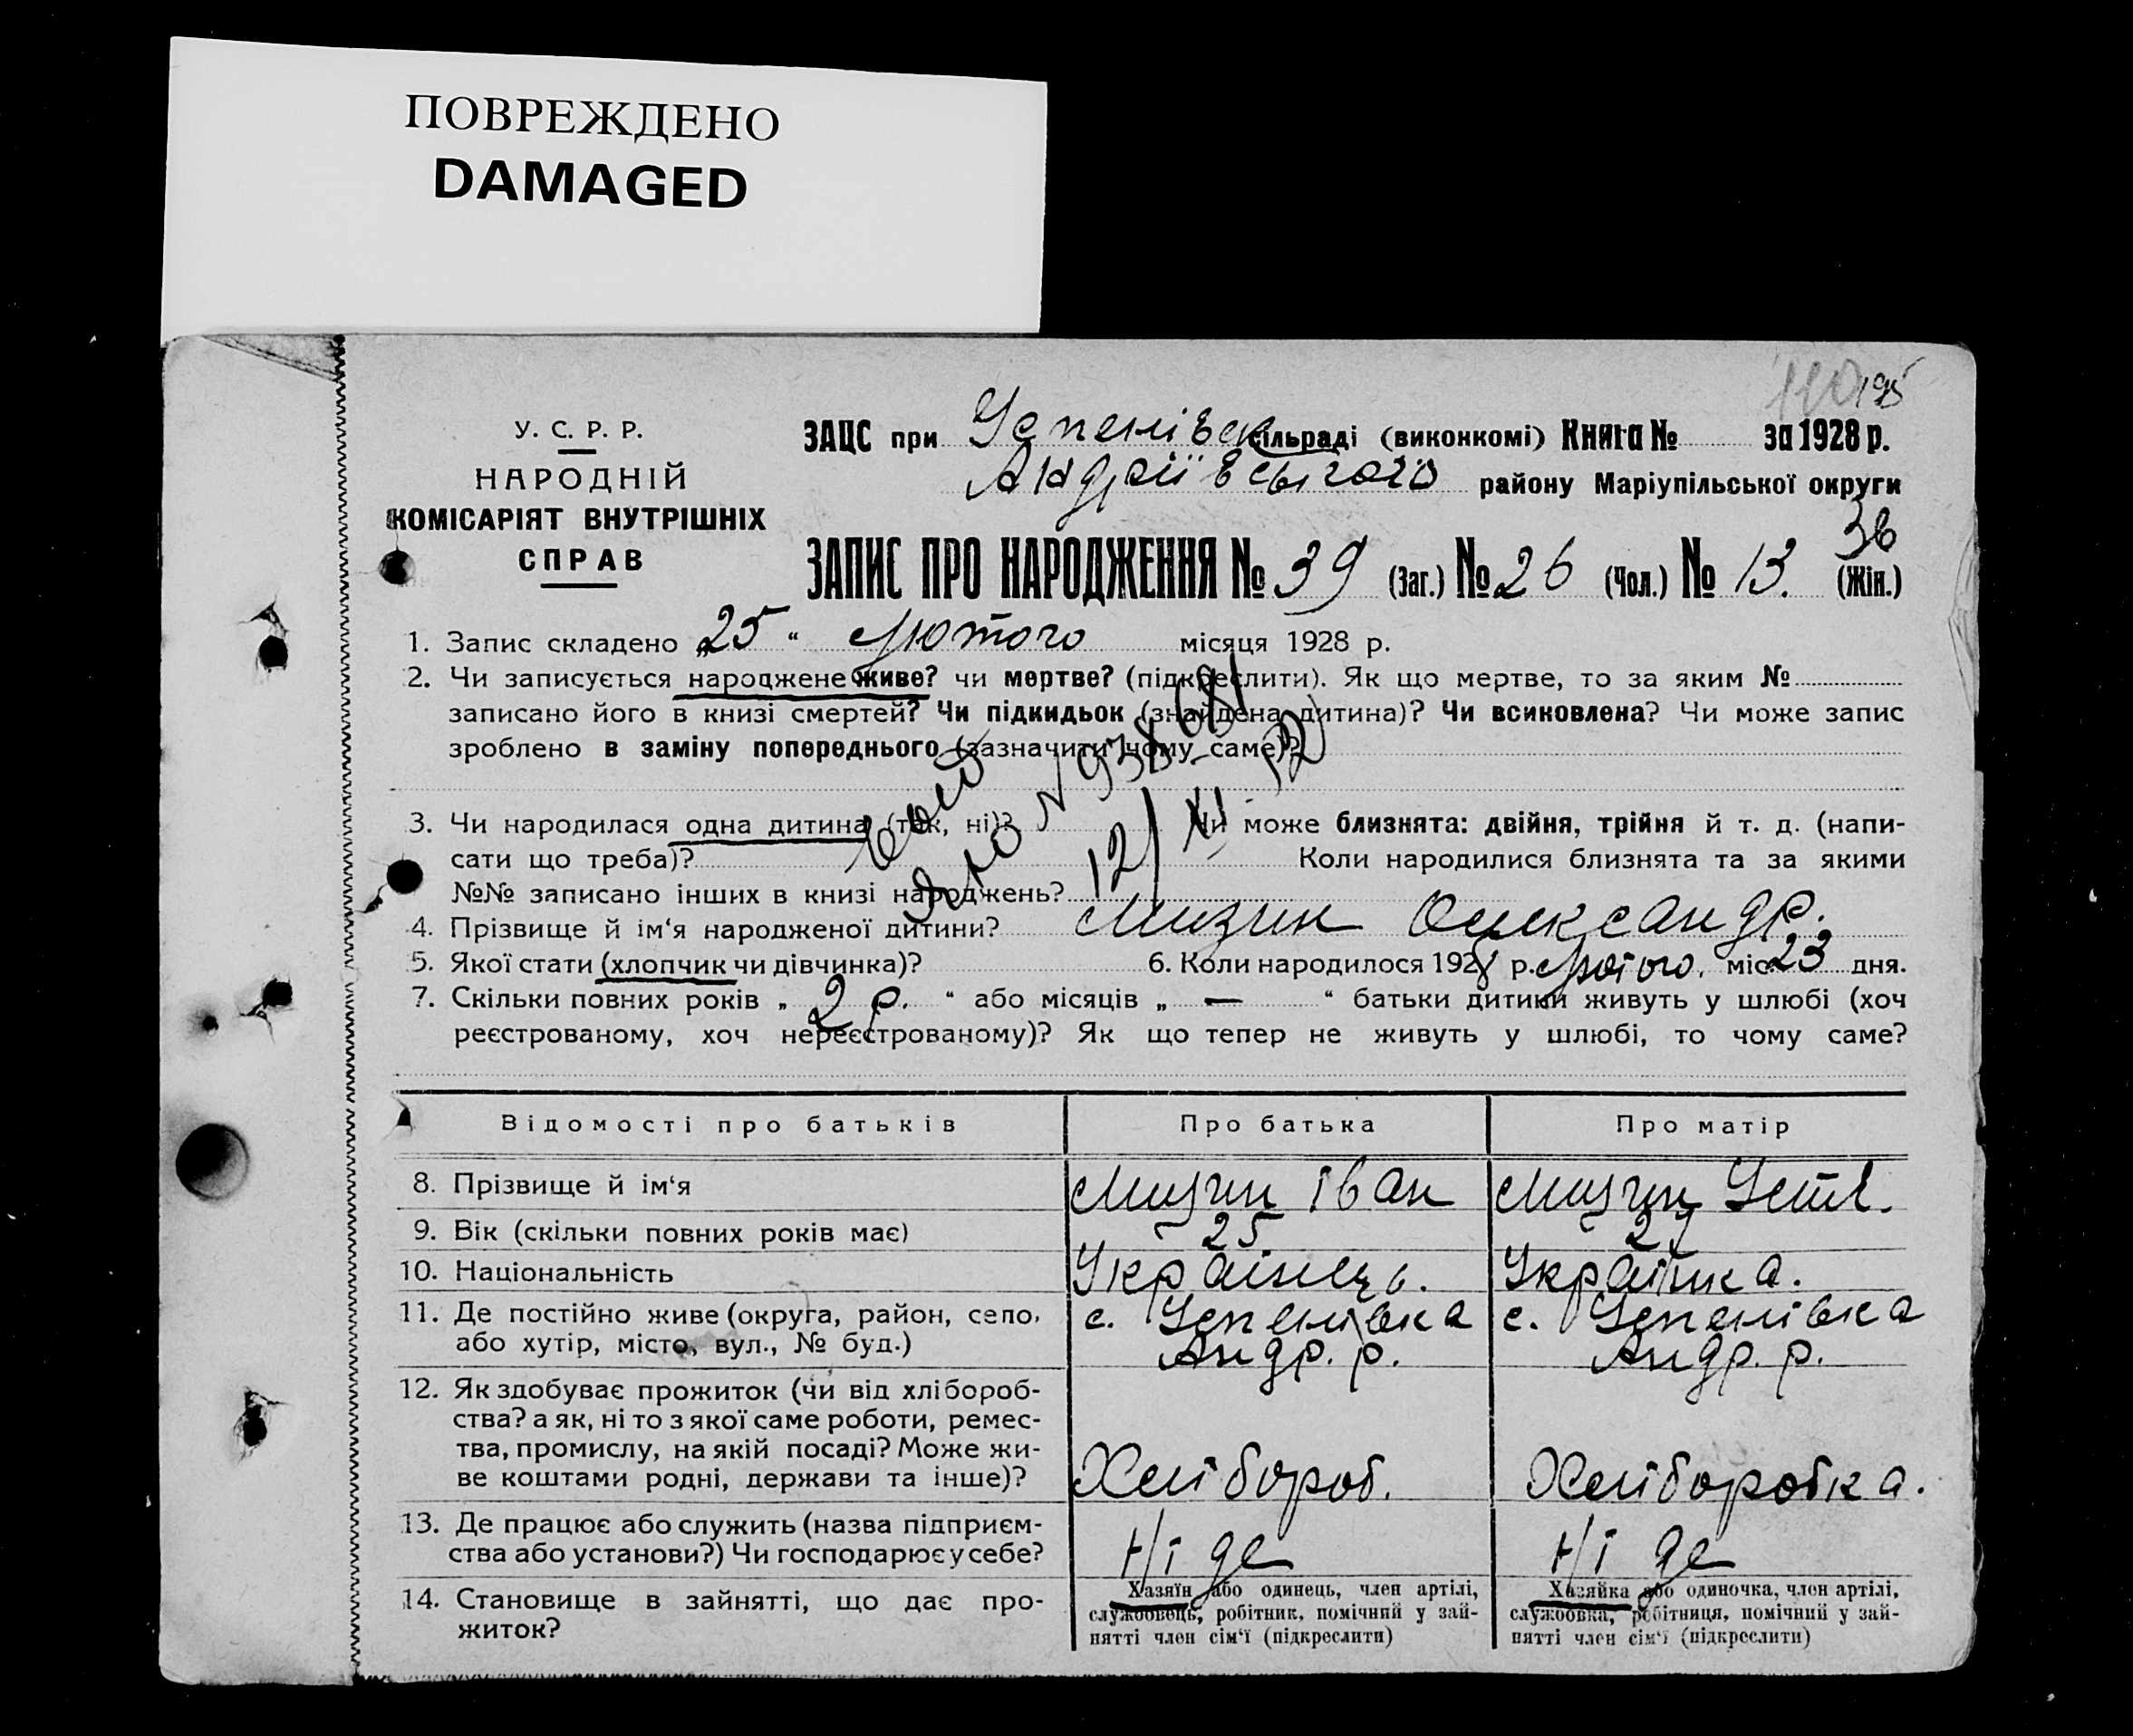 ПОВРЕЖДЕНО
DAMAGED
195
У. С. Р. Р.
НАРОДНІЙ
КОМІСАРІЯТ ВНУТРІШНІХ
СПРАВ
ЗАЦС при Успенівск сільраді (виконкомі) Книга № за 1928 р.
Андріївського району Маріупільської округи
ЗАПИС ПРО НАРОДЖЕННЯ № 39 (Заг.) № 26 (Чол.) № 13. (Жін.)
1. Запис складено „25“ лютого місяця 1928 р.
2. Чи записується народжене живе? чи мертве? (підкреслити). Як що мертве, то за яким №
записано його в книзі смертей? Чи підкидьок (знайдена дитина)? Чи всиновлена? Чи може запис
зроблено в заміну попереднього (зазначити чому саме)?
3. Чи народилася одна дитина (так, ні)? Чи може близнята: двійня, трійня й т. д. (напи-
сати що треба)? Коли народилися близнята та за якими
№№ записано інших в книзі народжень?
4. Прізвище й ім‘я народженої дитини? Мизин Олександр.
5. Якої стати (хлопчик чи дівчинка)? 6. Коли народилося 1928 р. лютого. міс. 23 дня.
7. Скільки повних років „ 2 р. “ або місяців „ — “ батьки дитини живуть у шлюбі (хоч
реєстрованому, хоч нереєстрованому)? Як що тепер не живуть у шлюбі, то чому саме?
Відомості про батьків Про батька Про матір
8. Прізвище й ім‘я Мизин Іван Мизин Уст.
9. Вік (скільки повних років має) 25 27
10. Національність Українець. Українка.
11. Де постійно живе (округа, район, село, с. Успенівка с. Успенівка
або хутір, місто, вул., № буд.) Андр. р. Андр. р.
12. Як здобуває прожиток (чи від хлібороб-
ства? а як, ні то з якої саме роботи, ремес-
тва, промислу, на якій посаді? Може жи-
ве коштами родні, держави та інше)? Хлібороб. Хлібороbка.
13. Де працює або служить (назва підприєм-
ства або установи?) Чи господарює у себе? Ні де Ні де
14. Становище в зайнятті, що дає про-
житок?
Хазяїн або одинець, член артілі,
службовець, робітник, помічний у зай-
нятті член сім‘ї (підкреслити)
Хазяйка або одиночка, член артілі,
службовка, робітниця, помічний у зай-
нятті член сім‘ї (підкреслити)